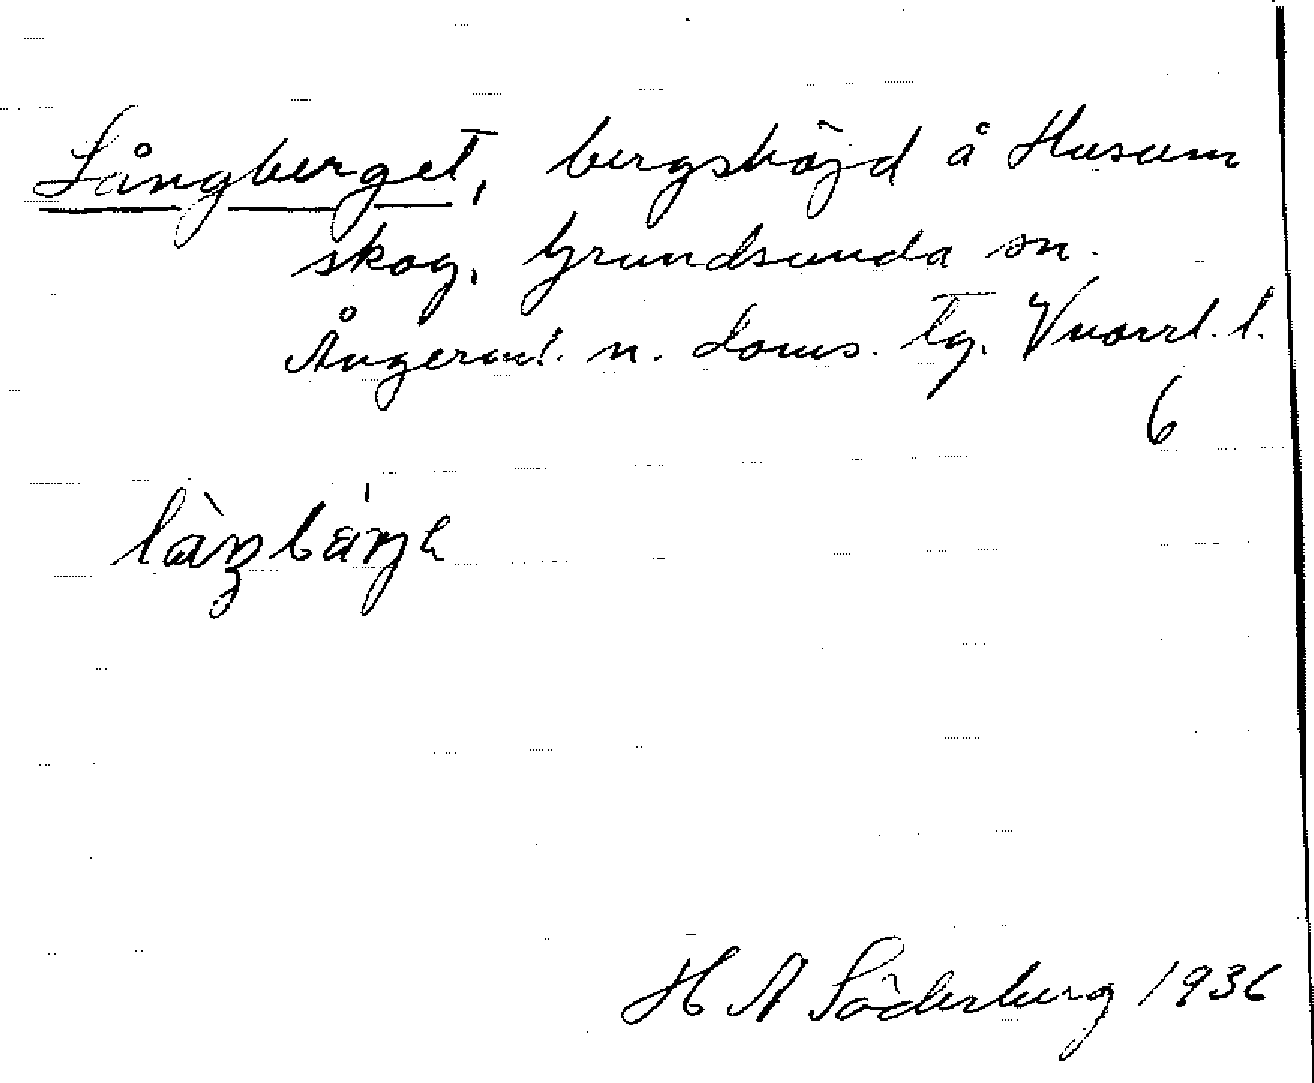 Långberget, bergshöjd å Husum
skog, Grundsunda sn.
Ångerml. n. doms. tg. Vnorrl. l.
6
H A Söderberg 1936